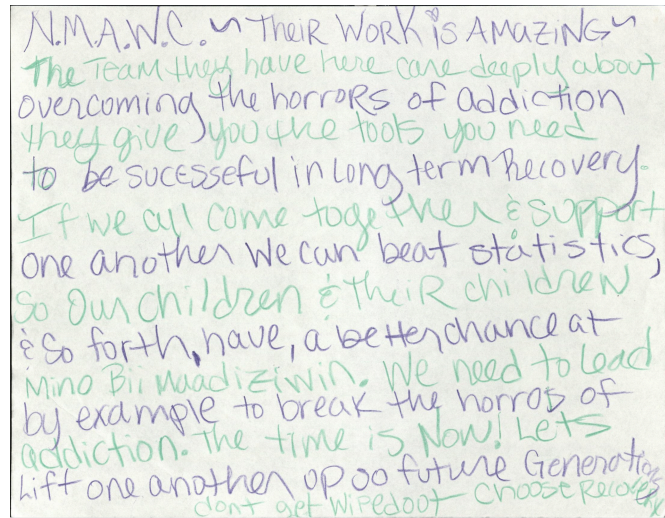 N.M.A.W.C. ~ TheiR WoRK is AMaZiNG ~
The Team they have here care deeply about
overcoming the horroRs of addiction
they give you the tools you need
to be sucesseful in long term Recovery.
If we all come together & support
one another We can beat statistics,
So Our children & TheiR children
& So forth, have, a better chance at
Mino Bii Maadiziwin. We need to lead
by example to break the horros of
addiction. The time is Now! Lets
Lift one another up so future Generations
dont get wipedout - Choose Recovery